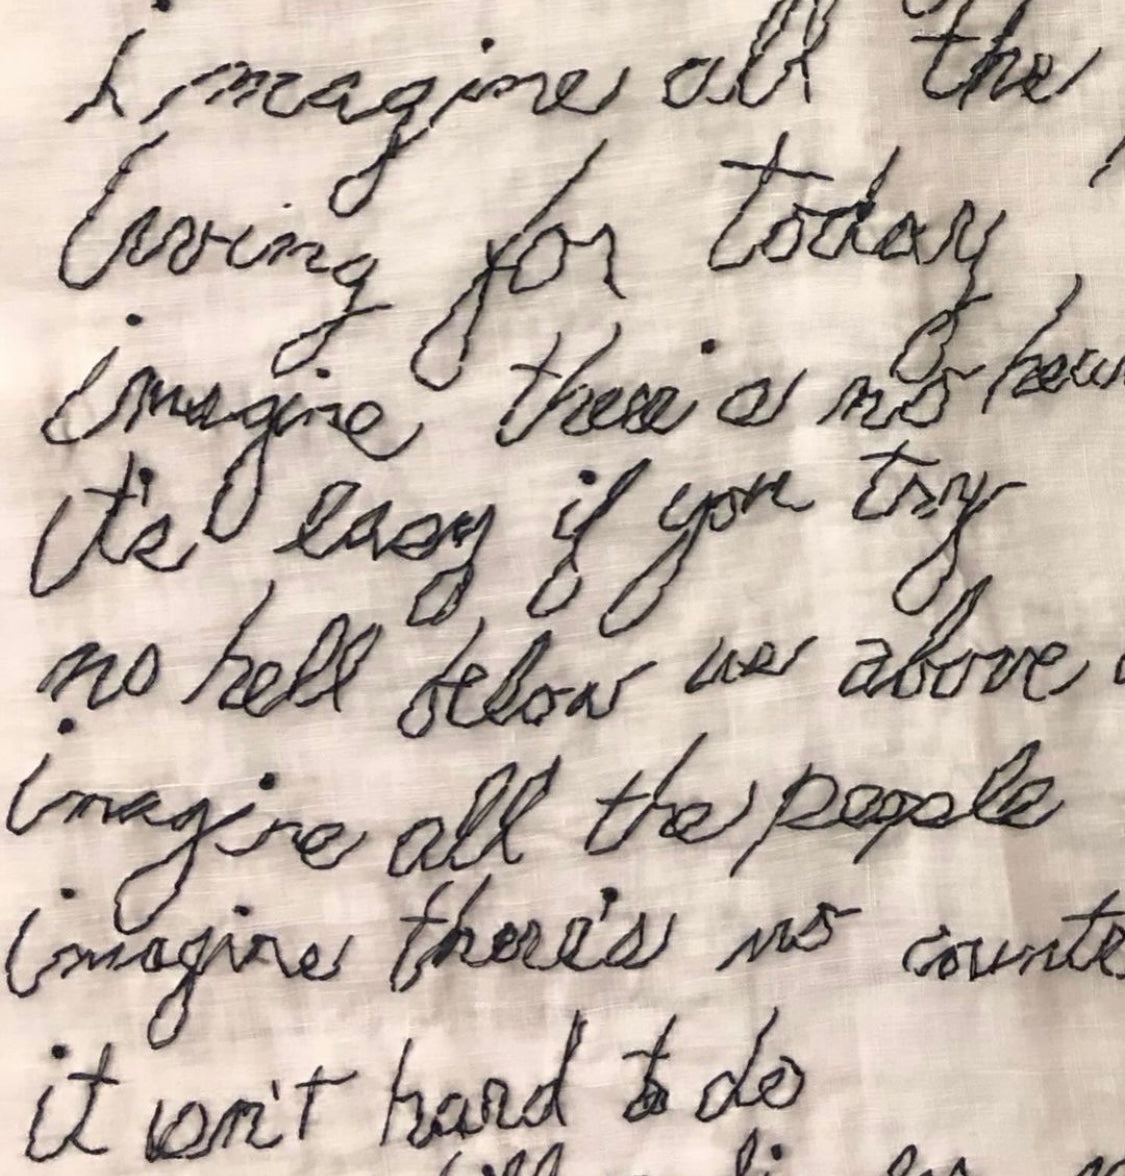 imagine all the
living for today
imagine there's no heav
it's easy if you try
no hell below us above
imagine all the people
imagine there's no counte
it isn't hard to do